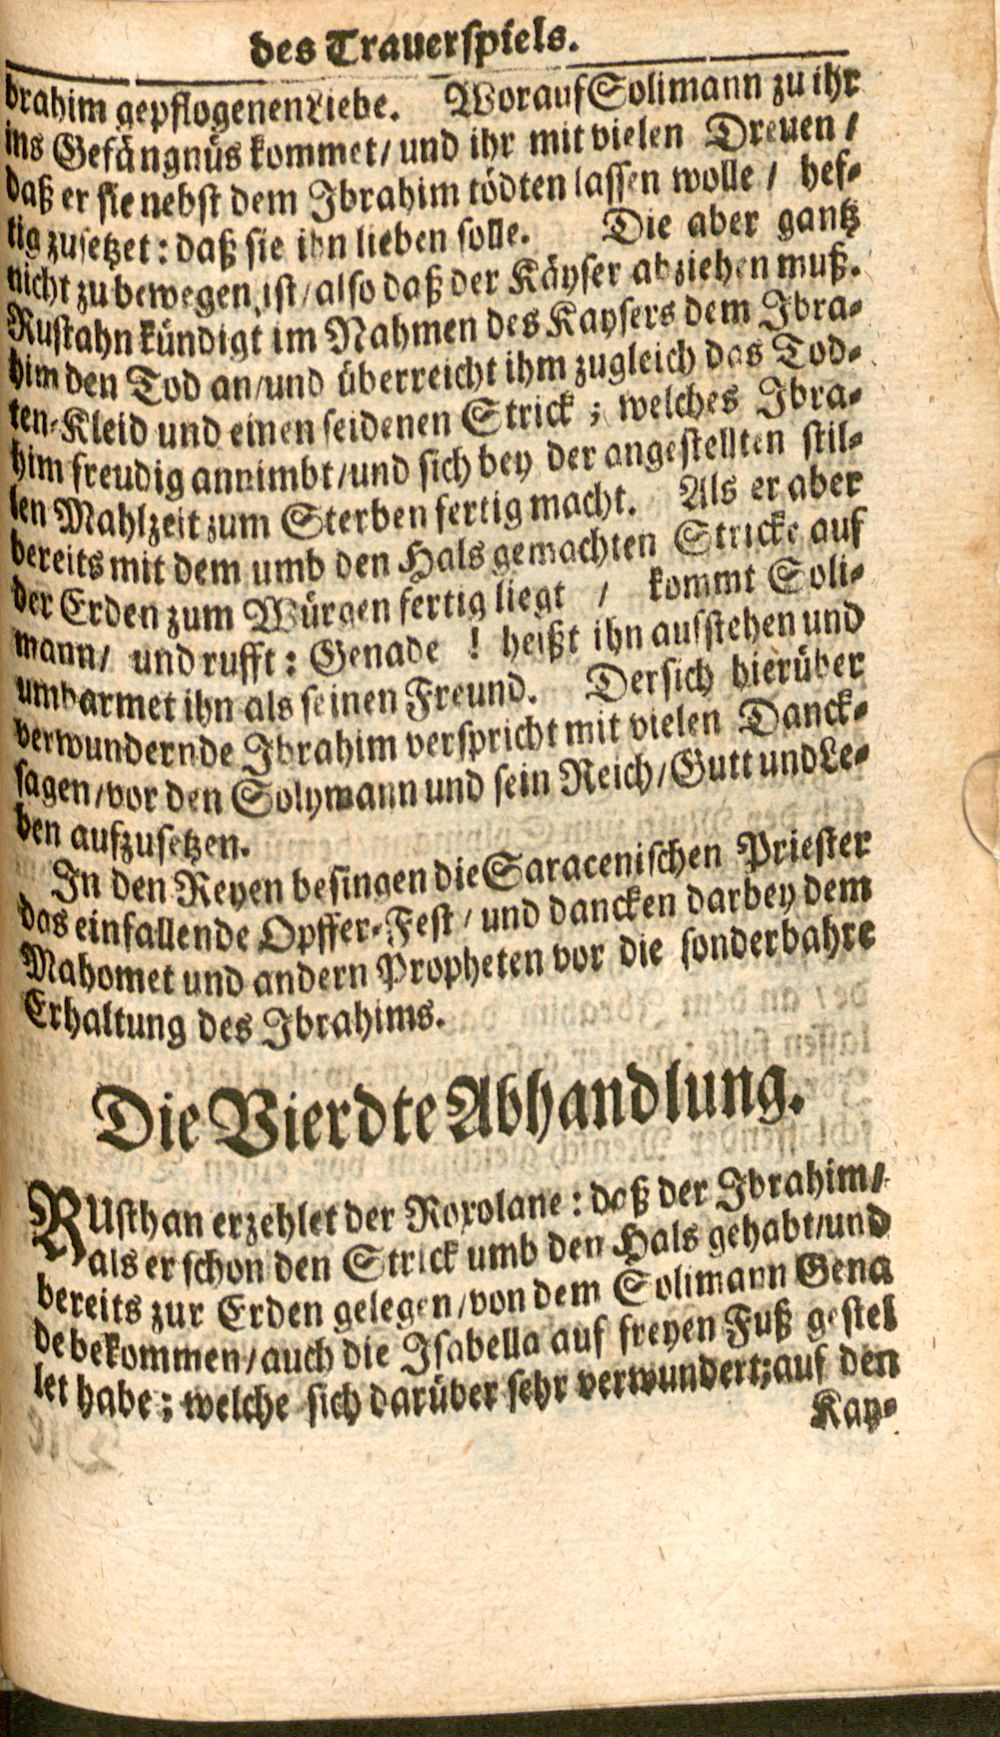 des Trauerspiels.
brahim gepflogenen Liebe. Worauf Solimann zu ihr
ins Gefängnüs kommet / und ihr mit vielen Dreuen /
daß er sie nebst dem Ibrahim tödten lassen wolle / hef-
tig zusetzet: daß sie ihn lieben solle. Die aber gantz
nicht zubewegen ist / also daß der Käyser abziehen muß.
Rustahn kündigt im Nahmen des Kaysers dem Ibra-
him den Tod an / und überreicht ihm zugleich das Tod-
ten-Kleid und einen seidenen Strick; welches Ibra-
him freudig annimbt / und sich bey der angestellten stil-
len Mahlzeit zum Sterben fertig macht. Als er aber
bereits mit dem umb den Hals gemachten Stricke auf
der Erden zum Würgen fertig liegt / kommt Soli-
mann / und rufft: Genade ! heißt ihn aufstehen und
umbarmet ihn als seinen Freund. Der sich hierüber
verwundernde Ibrahim verspricht mit vielen Danck-
sagen / vor den Solymann und sein Reich / Gutt und Le-
ben aufzusetzen.
In den Reyen besingen die Saracenischen Priester
das einfallende Opffer-Fest / und dancken darbey dem
Mahomet und andern Propheten vor die sonderbahre
Erhaltung des Ibrahims.
Die Vierdte Abhandlung.
RUsthan erzehlet der Roxolane: daß der Ibrahim /
als er schon den Strick umb den Hals gehabt / und
bereits zur Erden gelegen / von dem Solimann Gena
de bekommen / auch die Isabella auf freyen Fuß gestel
let habe; welche sich darüber sehr verwundert; auf den
Kay-